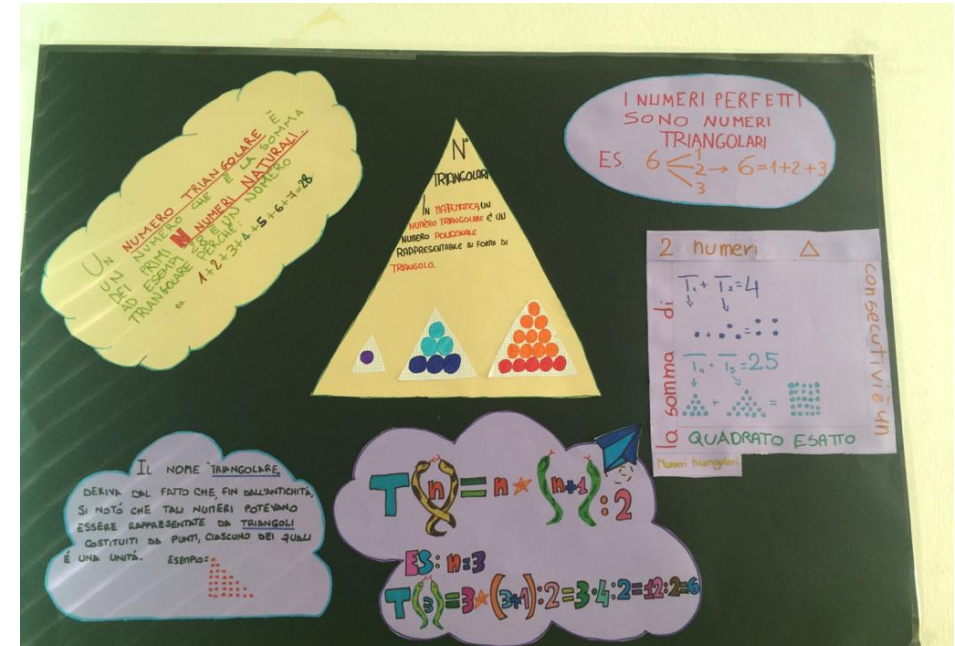 UN NUMERO TRIANGOLARE È
UN NUMERO CHE È LA SOMMA
DEI PRIMI N NUMERI NATURALI.
AD ESEMPIO 28 È UN NUMERO
TRIANGOLARE PERCHÉ:
ES. 1+2+3+4+5+6+7=28
N°
TRIANGOLARI
IN MATEMATICA, UN
NUMERO TRIANGOLARE É UN
NUMERO POLIGONALE
RAPPRESENTABILE IN FORMA DI
TRIANGOLO.
I NUMERI PERFETTI
SONO NUMERI
TRIANGOLARI
ES 6 1 2 3 → 6=1+2+3
la somma di
2 numeri △
consecutivi è un
QUADRATO ESATTO
T₁ + T₂ = 4
+ =
T₄ + T₅ = 25
+ =
Numeri triangolari
IL NOME "TRIANGOLARE"
DERIVA DAL FATTO CHE, FIN DALL'ANTICHITÀ,
SI NOTÒ CHE TALI NUMERI POTEVANO
ESSERE RAPPRESENTATE DA TRIANGOLI
COSTITUITI DA PUNTI, CIASCUNO DEI QUALI
É UNA UNITÀ. ESEMPIO=
T(n)=n*(n+1):2
ES: n=3
T(3)=3*(3+1):2=3·4:2=12:2=6